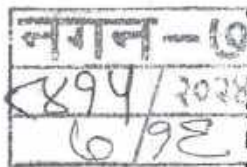 नगन - ७
८४१५/२०२४
७/१६